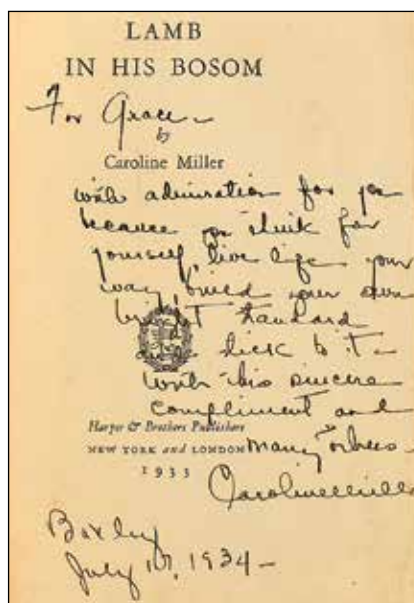 LAMB
IN HIS BOSOM
For Grace —
by
Caroline Miller
with admiration for you
because you think for
yourself, live life your
way, build your own
bright standard
and stick to it —
with this sincere
compliment and
Harper & Brothers Publishers
NEW YORK and LONDON many others —
1933
Caroline Miller
Baxley
July 1934 —